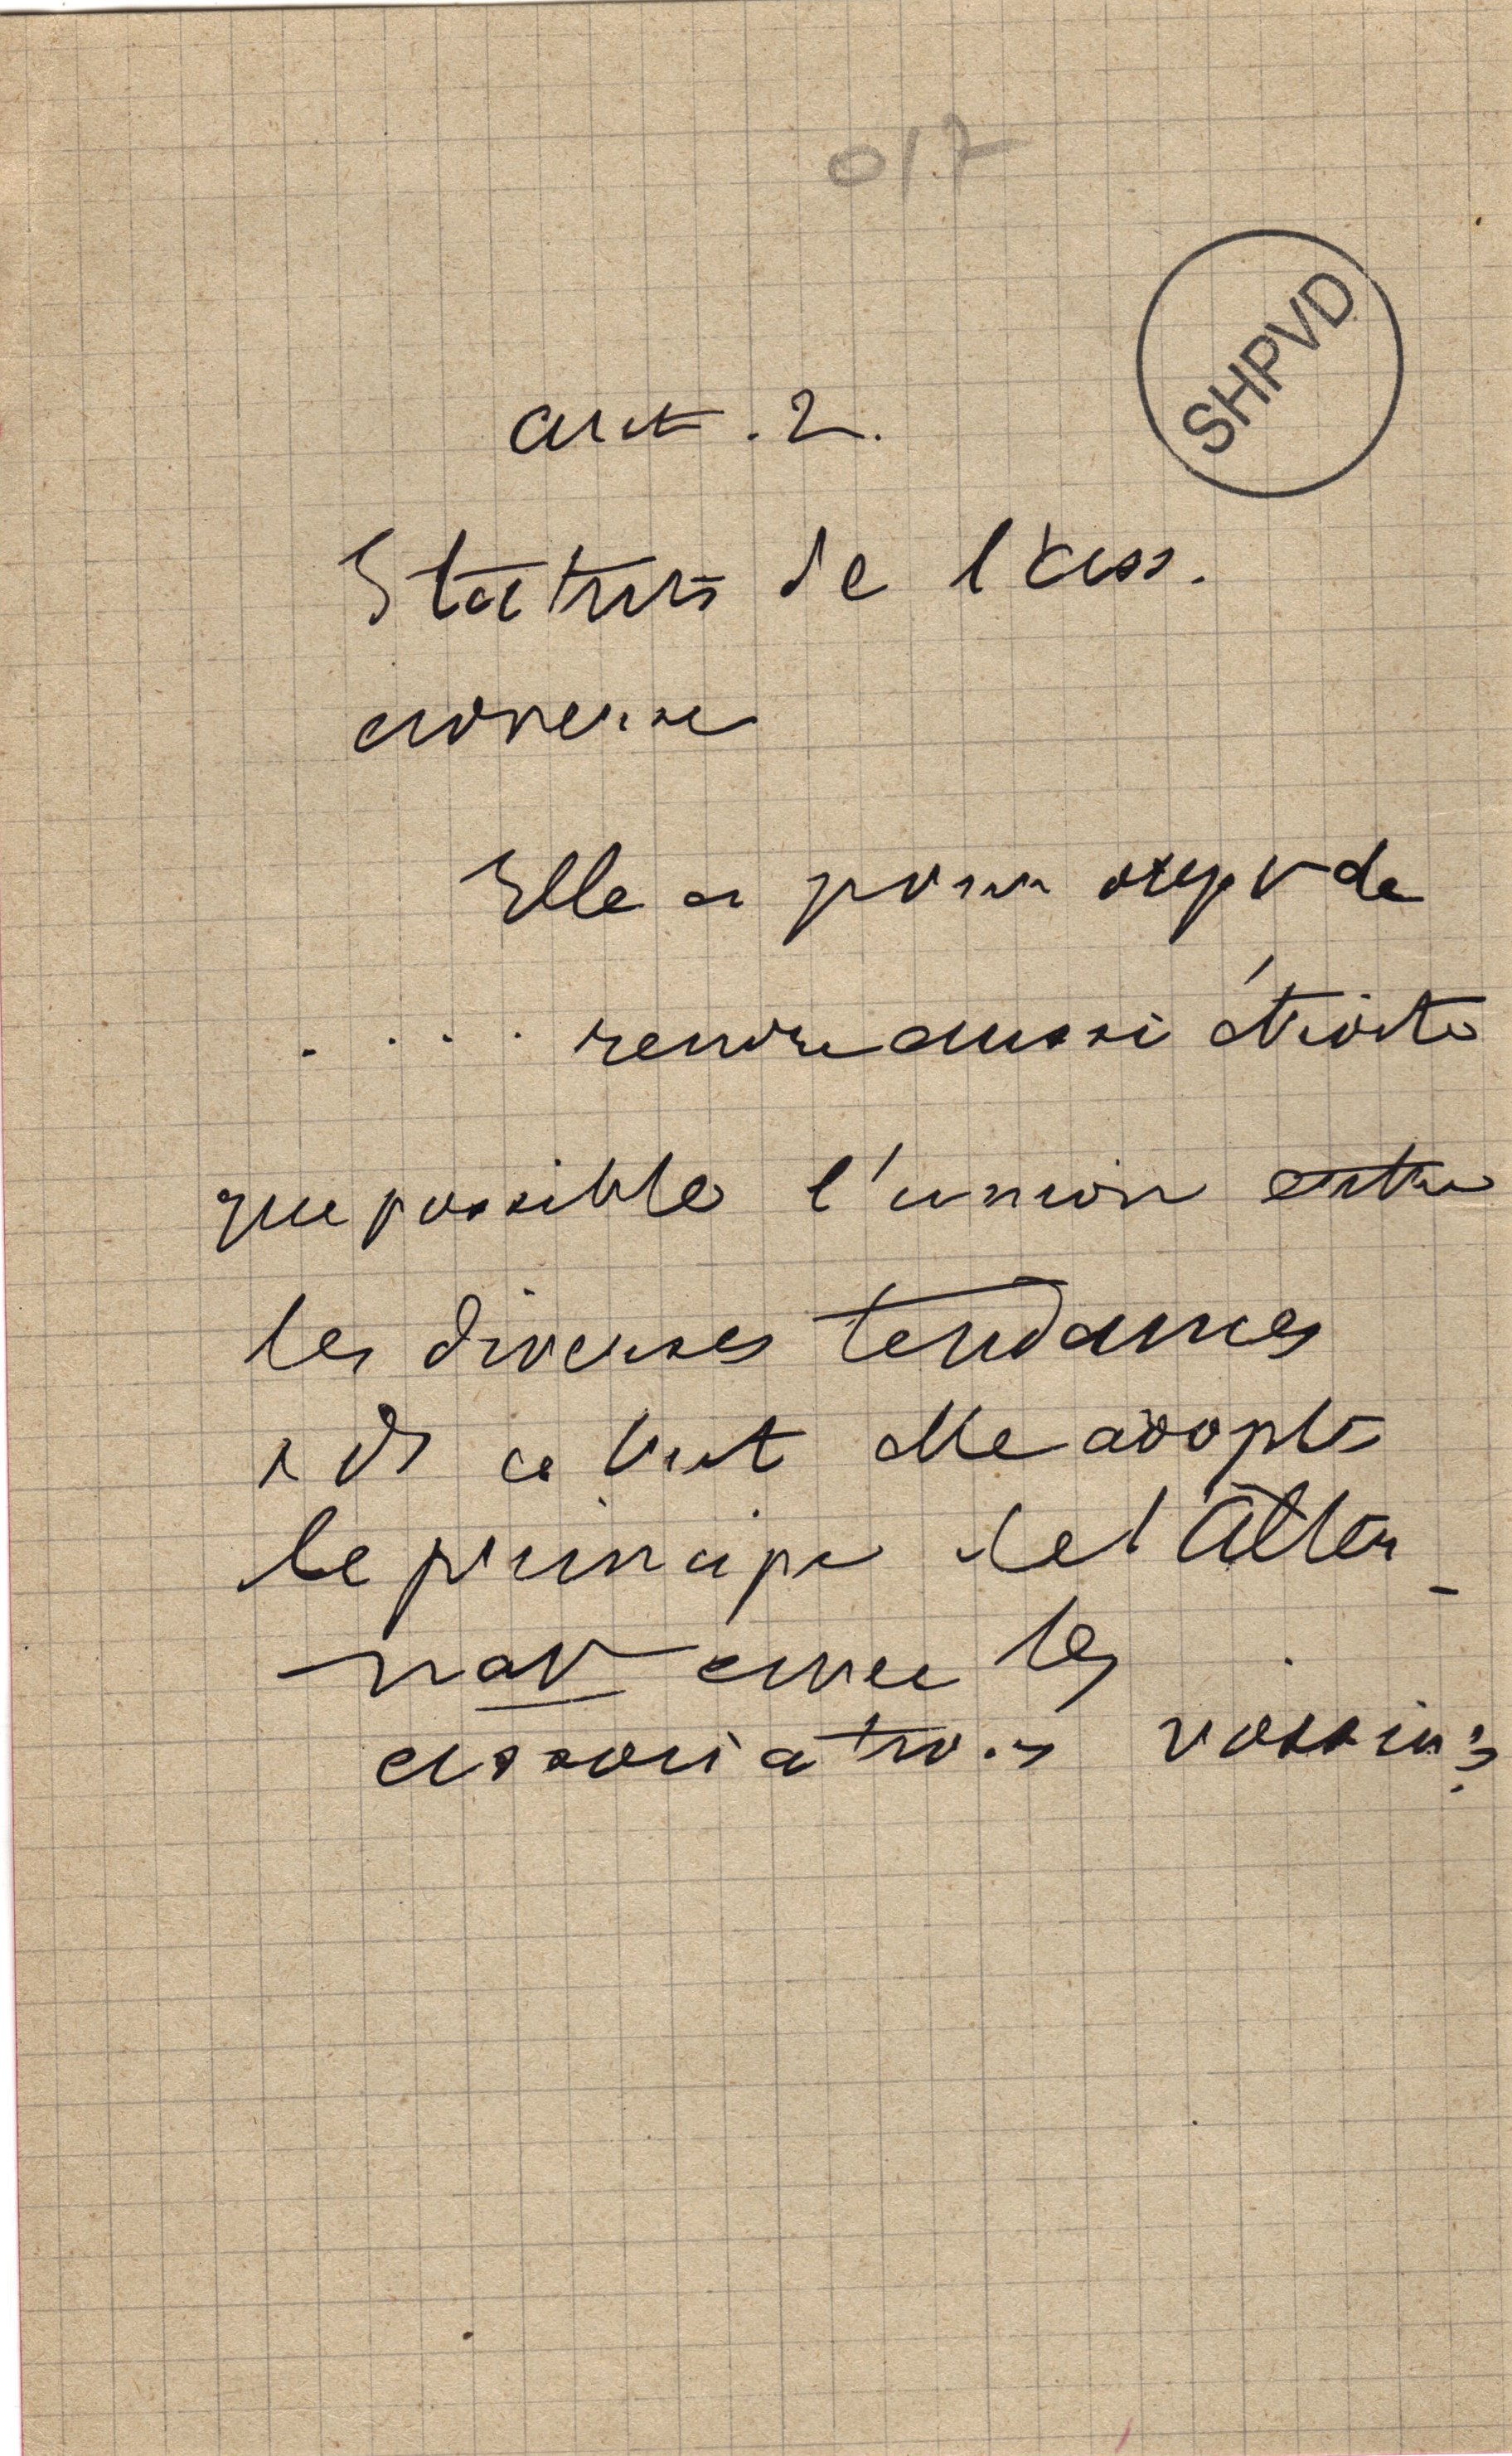 017
SHPVD
art. 2.
Statuts de l'ass.
Elle a pour de
.... rendre aussi étroite
que possible l'union entre
les diverses tendances
ds ce but elle adopte
le principe de l'Alter-
avec les
associations voisins